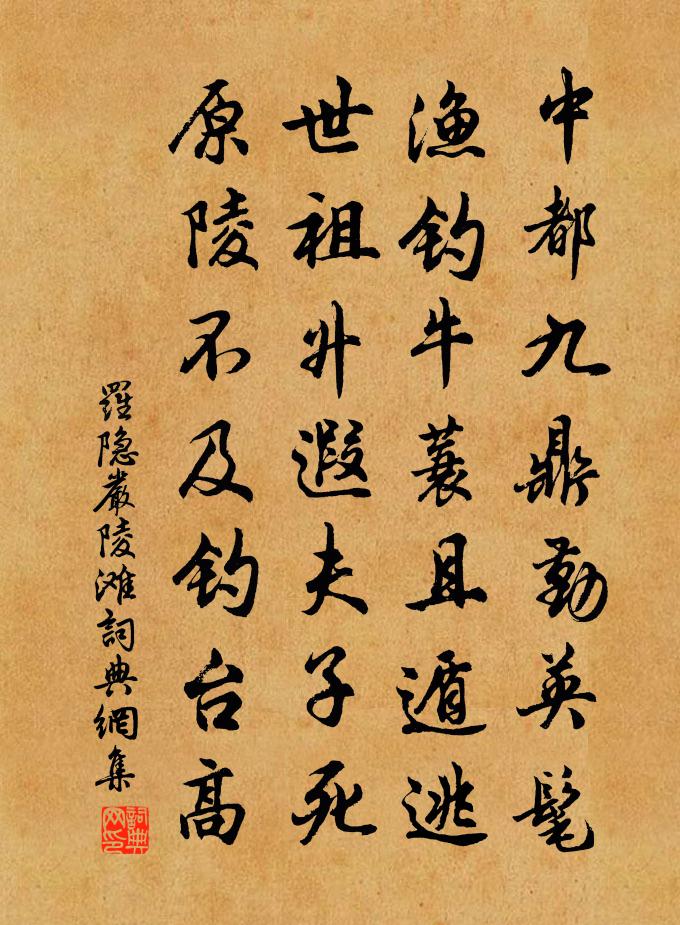 中都九鼎勤英髦
渔钓牛蓑且遁逃
世祖升遐夫子死
原陵不及钓台高
羅隐嚴陵滩詞典網集
詞典网印